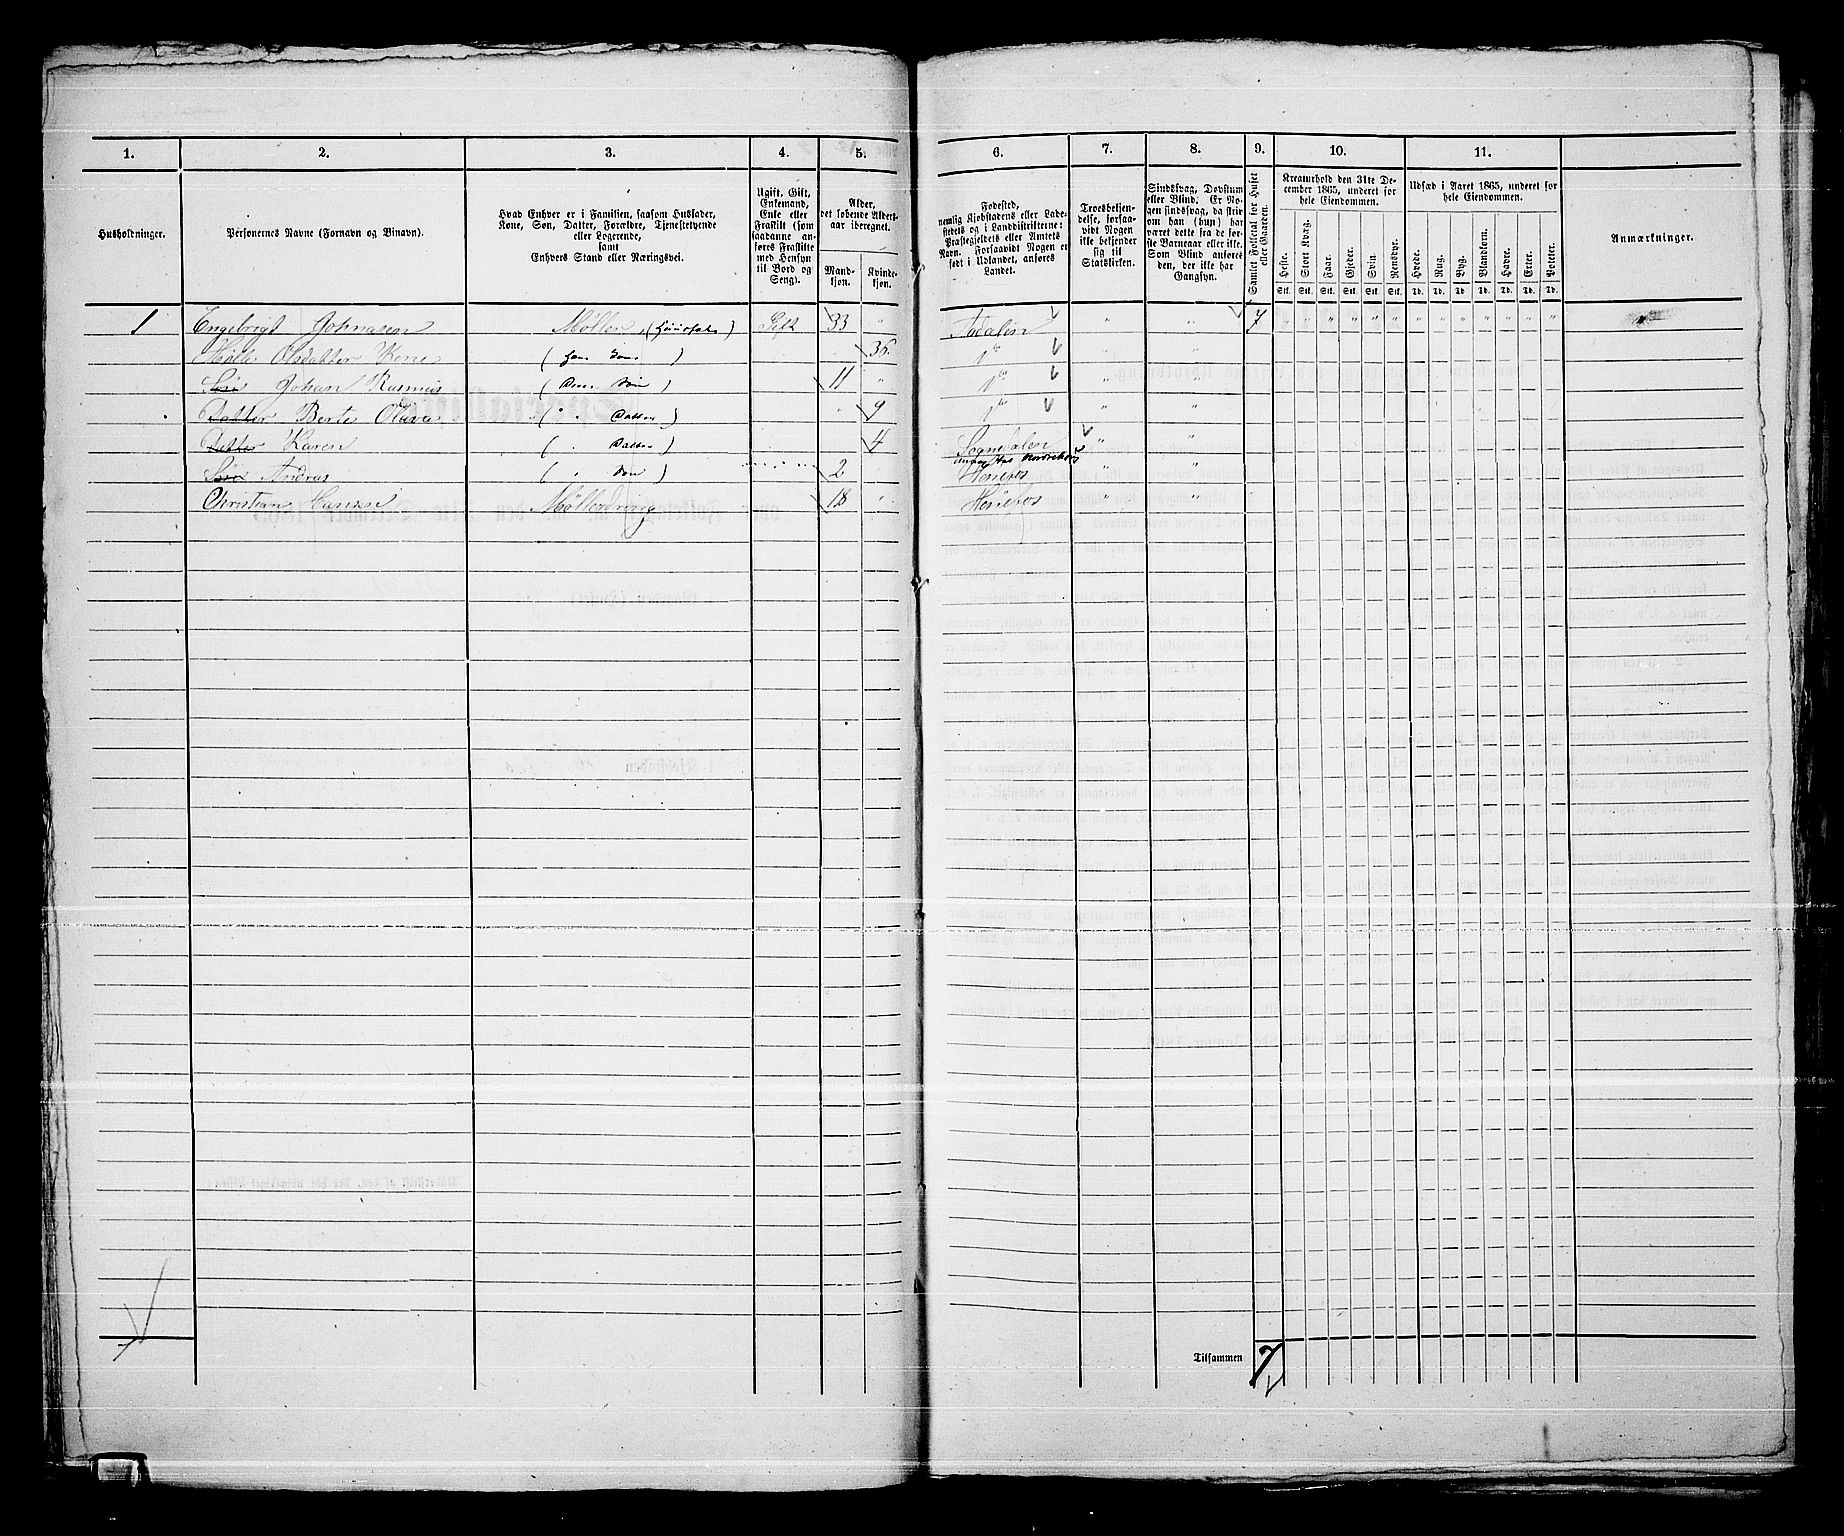 1. 2. 3. 4. 5. 6. 7. 8. 9. 10. 11.
Husholdninger.
Personernes Navne (Fornavn og Binavn).
Hvad Enhver er i Familien, saasom Husfader,
Kone, Søn, Datter, Forældre, Tjenestetyende
eller Logerende,
samt
Enhvers Stand eller Næringsvei.
Ugift, Gift,
Enkemand,
Enke eller
Fraskilt (som
saadanne an-
føres Fraskilte
med Hensyn
til Bord og
Seng).
Alder,
det løbende Alders-
aar iberegnet.
Mand-
kjøn.
Kvinde-
kjøn.
Fødested,
nemlig Kjøbstadens eller Lade-
stedets og i Landdistrikterne:
Præstegjeldets eller Amtets
Navn. Forsaavidt Nogen er
født i Udlandet, anføres
Landet.
Troesbekjen-
delse, forsaa-
vidt Nogen
ikke bekjender
sig til
Statskirken.
Sindssvag, Døvstum
eller Blind. Er No-
gen sindssvag, da skriv
om han (hun) har
været dette fra de før-
ste Barneaar eller ikke.
Som Blind anføres
den, der ikke har
Gangsyn.
Samlet Folketal for Huset
eller Gaarden.
Kreaturhold den 31te De-
cember 1865, underet for
hele Eiendommen.
Heste. Stort Kvæg. Faar. Gjeder. Svin. Rensdyr.
Stk. Stk. Stk. Stk. Stk. Stk.
Udsæd i Aaret 1865, underet for
hele Eiendommen.
Hvede. Rug. Byg. Blandkorn. Havre. Erter. Poteter.
Td. Td. Td. Td. Td. Td. Td.
Anmærkninger.
1 Engebrigt Johnasen Møller (Huusfader) Gift 33 " Aadalen " " 7 " " " " " " " " " " " " "
Olsdatter Kone (hans Kone) " 36 do " "
Søn Johan Rasmus (Deres Søn) 11 " do " "
Datter Berte Olava (" " Datter) " 9 do " "
Datter Karen (" Datter) 4 Sognedalen " "
Søn Andras (" Søn) 2 Hønefos " "
Christian Hansen Møllerdreng 18 " Hønefos " "
Tilsammen 7